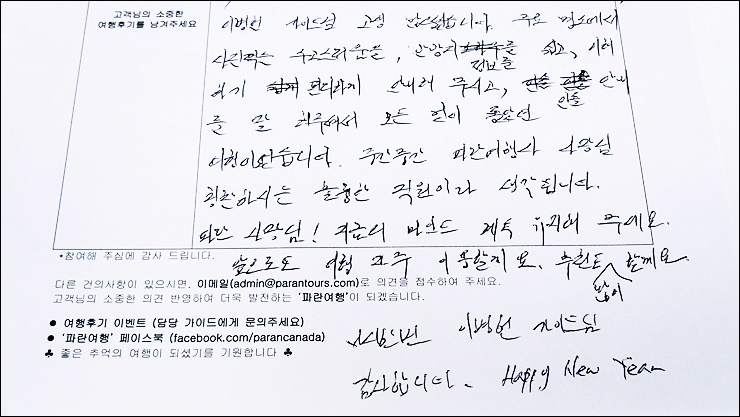 고객님의 소중한
여행후기를 남겨주세요
이병헌 가이드님 고생 많으셨습니다. 주요 명소에서
사진찍는 수고스러움을, 관광지 정보를 쉽고, 이해
하기 편리하게 안내해 주시고, 인솔 안내
를 잘 해주셔서 모든 것이 좋았던
여행이었습니다. 중간중간 파란여행사 사장님
칭찬하시는 훌륭한 직원이라 생각됩니다.
파란 사장님! 지금의 마인드 계속 유지해 주세요.
앞으로도 여행 자주 이용할게요. 추천도 많이 할께요.
*참여해 주심에 감사 드립니다.
다른 건의사항이 있으시면, 이메일(admin@parantours.com)로 의견을 접수하여 주세요.
고객님의 소중한 의견 반영하여 더욱 발전하는 '파란여행'이 되겠습니다.
● 여행후기 이벤트 (담당 가이드에게 문의주세요)
● '파란여행' 페이스북 (facebook.com/parancanada)
♣ 좋은 추억의 여행이 되셨기를 기원합니다 ♣
다시한번 이병헌 가이드님
감사합니다. Happy New Year